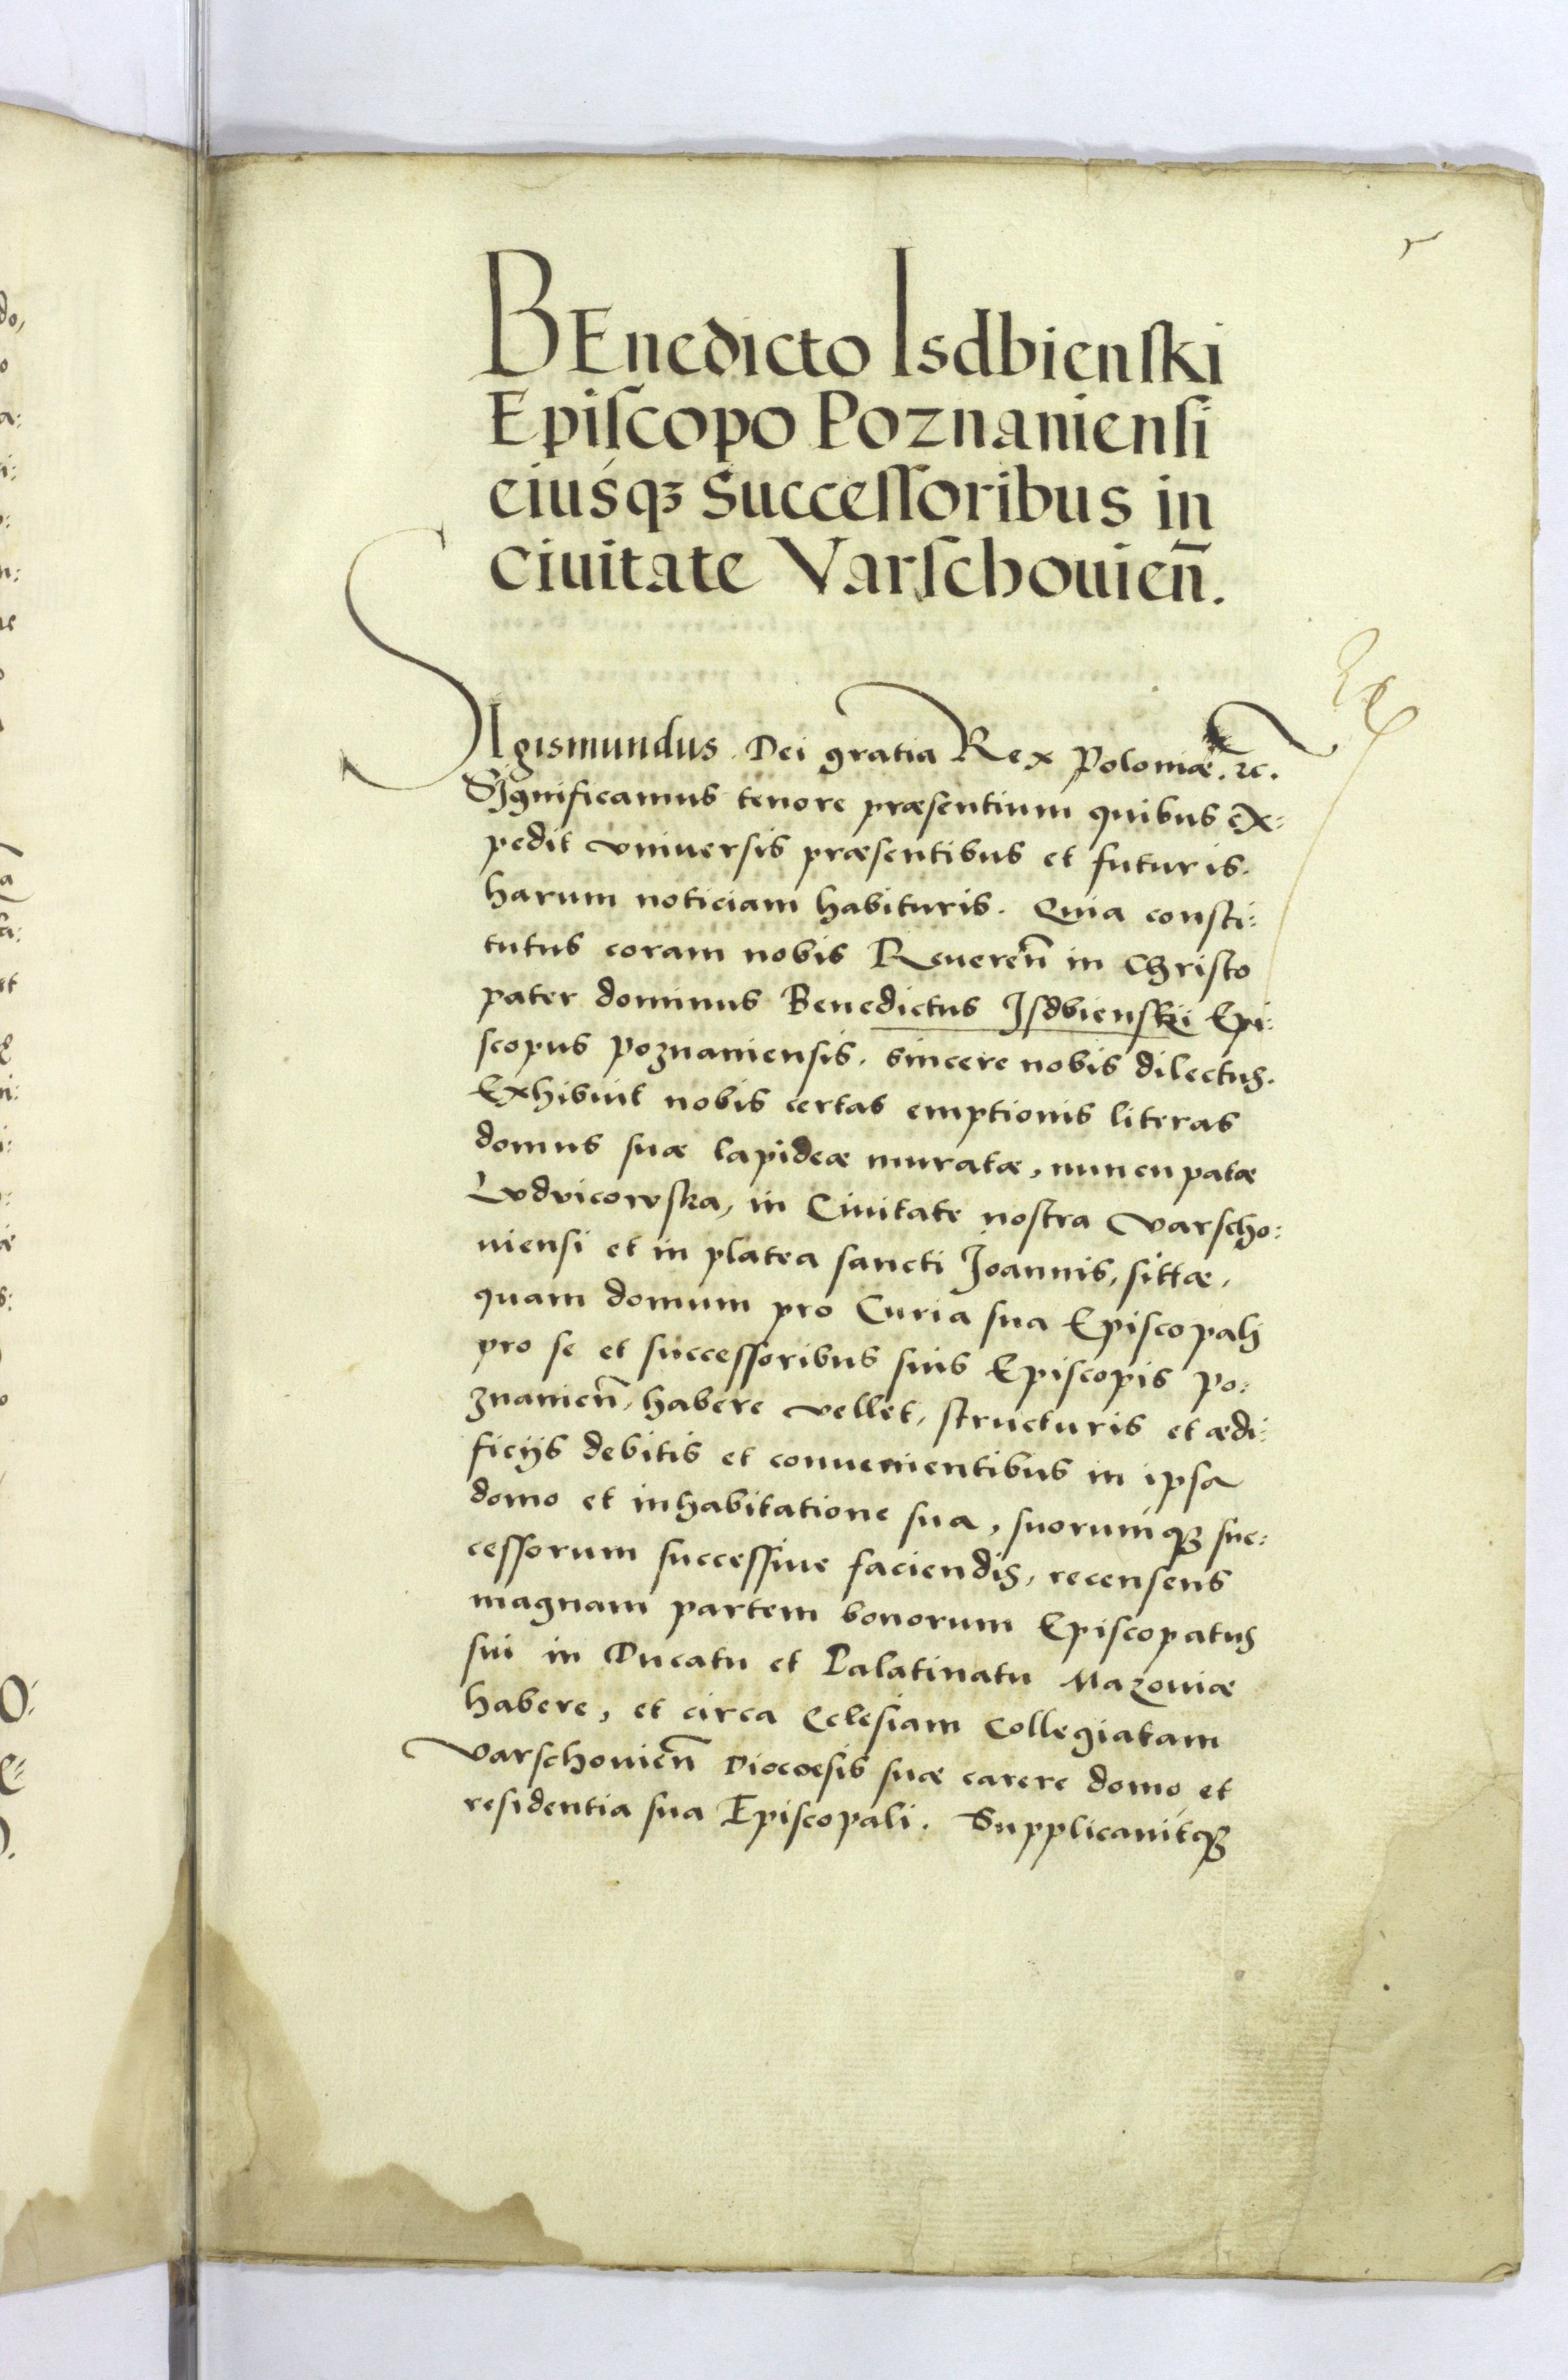 BEnedicto Isdbienski
Episcopo Poznaniensi
eiusq3 Successoribus in
ciuitate Varschouien̄.
SIgismundus Dei gratia Rex Poloniæ. ⁊c.
Significamus tenore præsentium quibus ex:
pedit vniuersis præsentibus et futuris.
harum noticiam habituris. Quia consti:
tutus coram nobis Reueren̄ in Christo
pater dominus Benedictus Isdbienski Epi:
scopus Poznaniensis. sincere nobis dilectus.
Exhibuit nobis certas emptionis literas
domus suæ lapideæ muratæ, nuncupatæ
Lvdvicowska, in Ciuitate nostra Varscho:
uiensi et in platea sancti Joannis, sittæ,
quam domum pro Curia sua Episcopali
pro se et successoribus suis Episcopis Po:
znanien̄, habere vellet, structuris et ædi:
ficijs debitis et conuenientibus in ipsa
domo et inhabitatione sua, suorumq3 suc:
cessorum successiue faciendis, recensens
magnam partem bonorum Episcopatus
sui in Ducatu et Palatinatu Mazouiæ
habere, et circa Eclesiam Collegiatam
Varschouien̄ Diocœsis suæ carere domo et
residentia sua Episcopali. Supplicauitq3